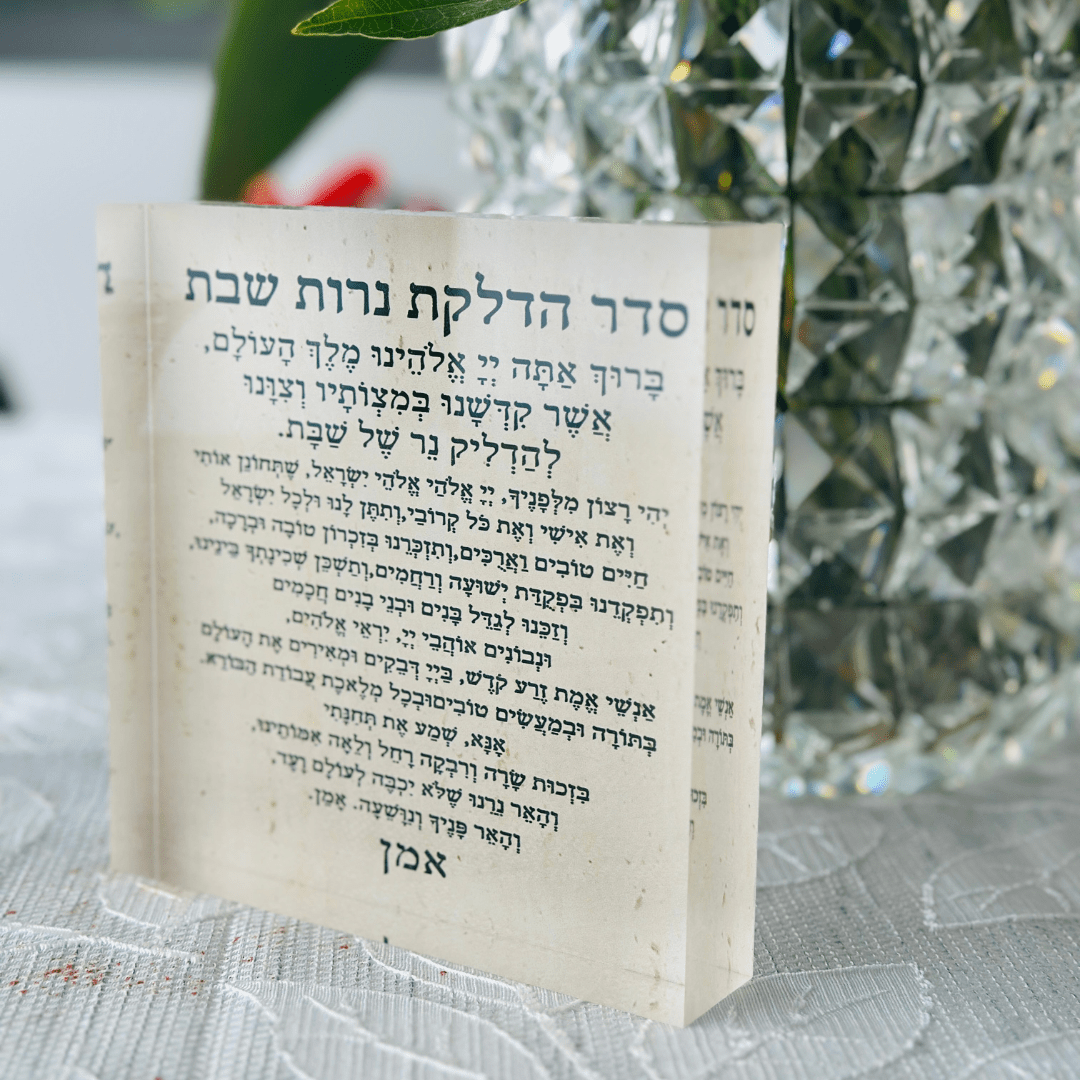 סדר הדלקת נרות שבת
בָּרוּךְ אַתָּה יְיָ אֱלֹהֵינוּ מֶלֶךְ הָעוֹלָם,
אֲשֶׁר קִדְּשָׁנוּ בְּמִצְוֹתָיו וְצִוָּנוּ
לְהַדְלִיק נֵר שֶׁל שַׁבָּת.
יְהִי רָצוֹן מִלְּפָנֶיךָ, יְיָ אֱלֹהַי אֱלֹהֵי יִשְׂרָאֵל, שֶׁתְּחוֹנֵן אוֹתִי
וְאֶת אִישִׁי וְאֶת כֹּל קְרוֹבַי,וְתִתֶּן לָנוּ וּלְכָל יִשְׂרָאֵל
חַיִּים טוֹבִים וַאֲרֻכִּים,וְתִזְכְּרֵנוּ בְּזִכְרוֹן טוֹבָה וּבְרָכָה,
וְתִפְקְדֵנוּ בִּפְקֻדַּת יְשׁוּעָה וְרַחֲמִים,וְתַשְׁכֵּן שְׁכִינָתְךָ בֵּינֵינוּ,
וְזַכֵּנוּ לְגַדֵּל בָּנִים וּבְנֵי בָנִים חֲכָמִים
וּנְבוֹנִים אוֹהֲבֵי יְיָ, יִרְאֵי אֱלֹהִים,
אַנְשֵׁי אֱמֶת זֶרַע קֹדֶשׁ, בַּיְיָ דְּבֵקִים וּמְאִירִים אֶת הָעוֹלָם
בְּתּוֹרָה וּבְמַעֲשִׂים טוֹבִיםוּבְכָל מְלֶאכֶת עֲבוֹדַת הַבּוֹרֵא.
אָנָּא, שְׁמַע אֶת תְּחִנָּתִי
בִּזְכוּת שָׂרָה וְרִבְקָה רָחֵל וְלֵאָה אִמּוֹתֵינוּ,
וְהָאֵר נֵרֵנוּ שֶׁלֹּא יִכְבֶּה לְעוֹלָם וָעֶד,
וְהָאֵר פָּנֶיךָ וְנִוָּשֵׁעָה. אָמֵן.
אמן